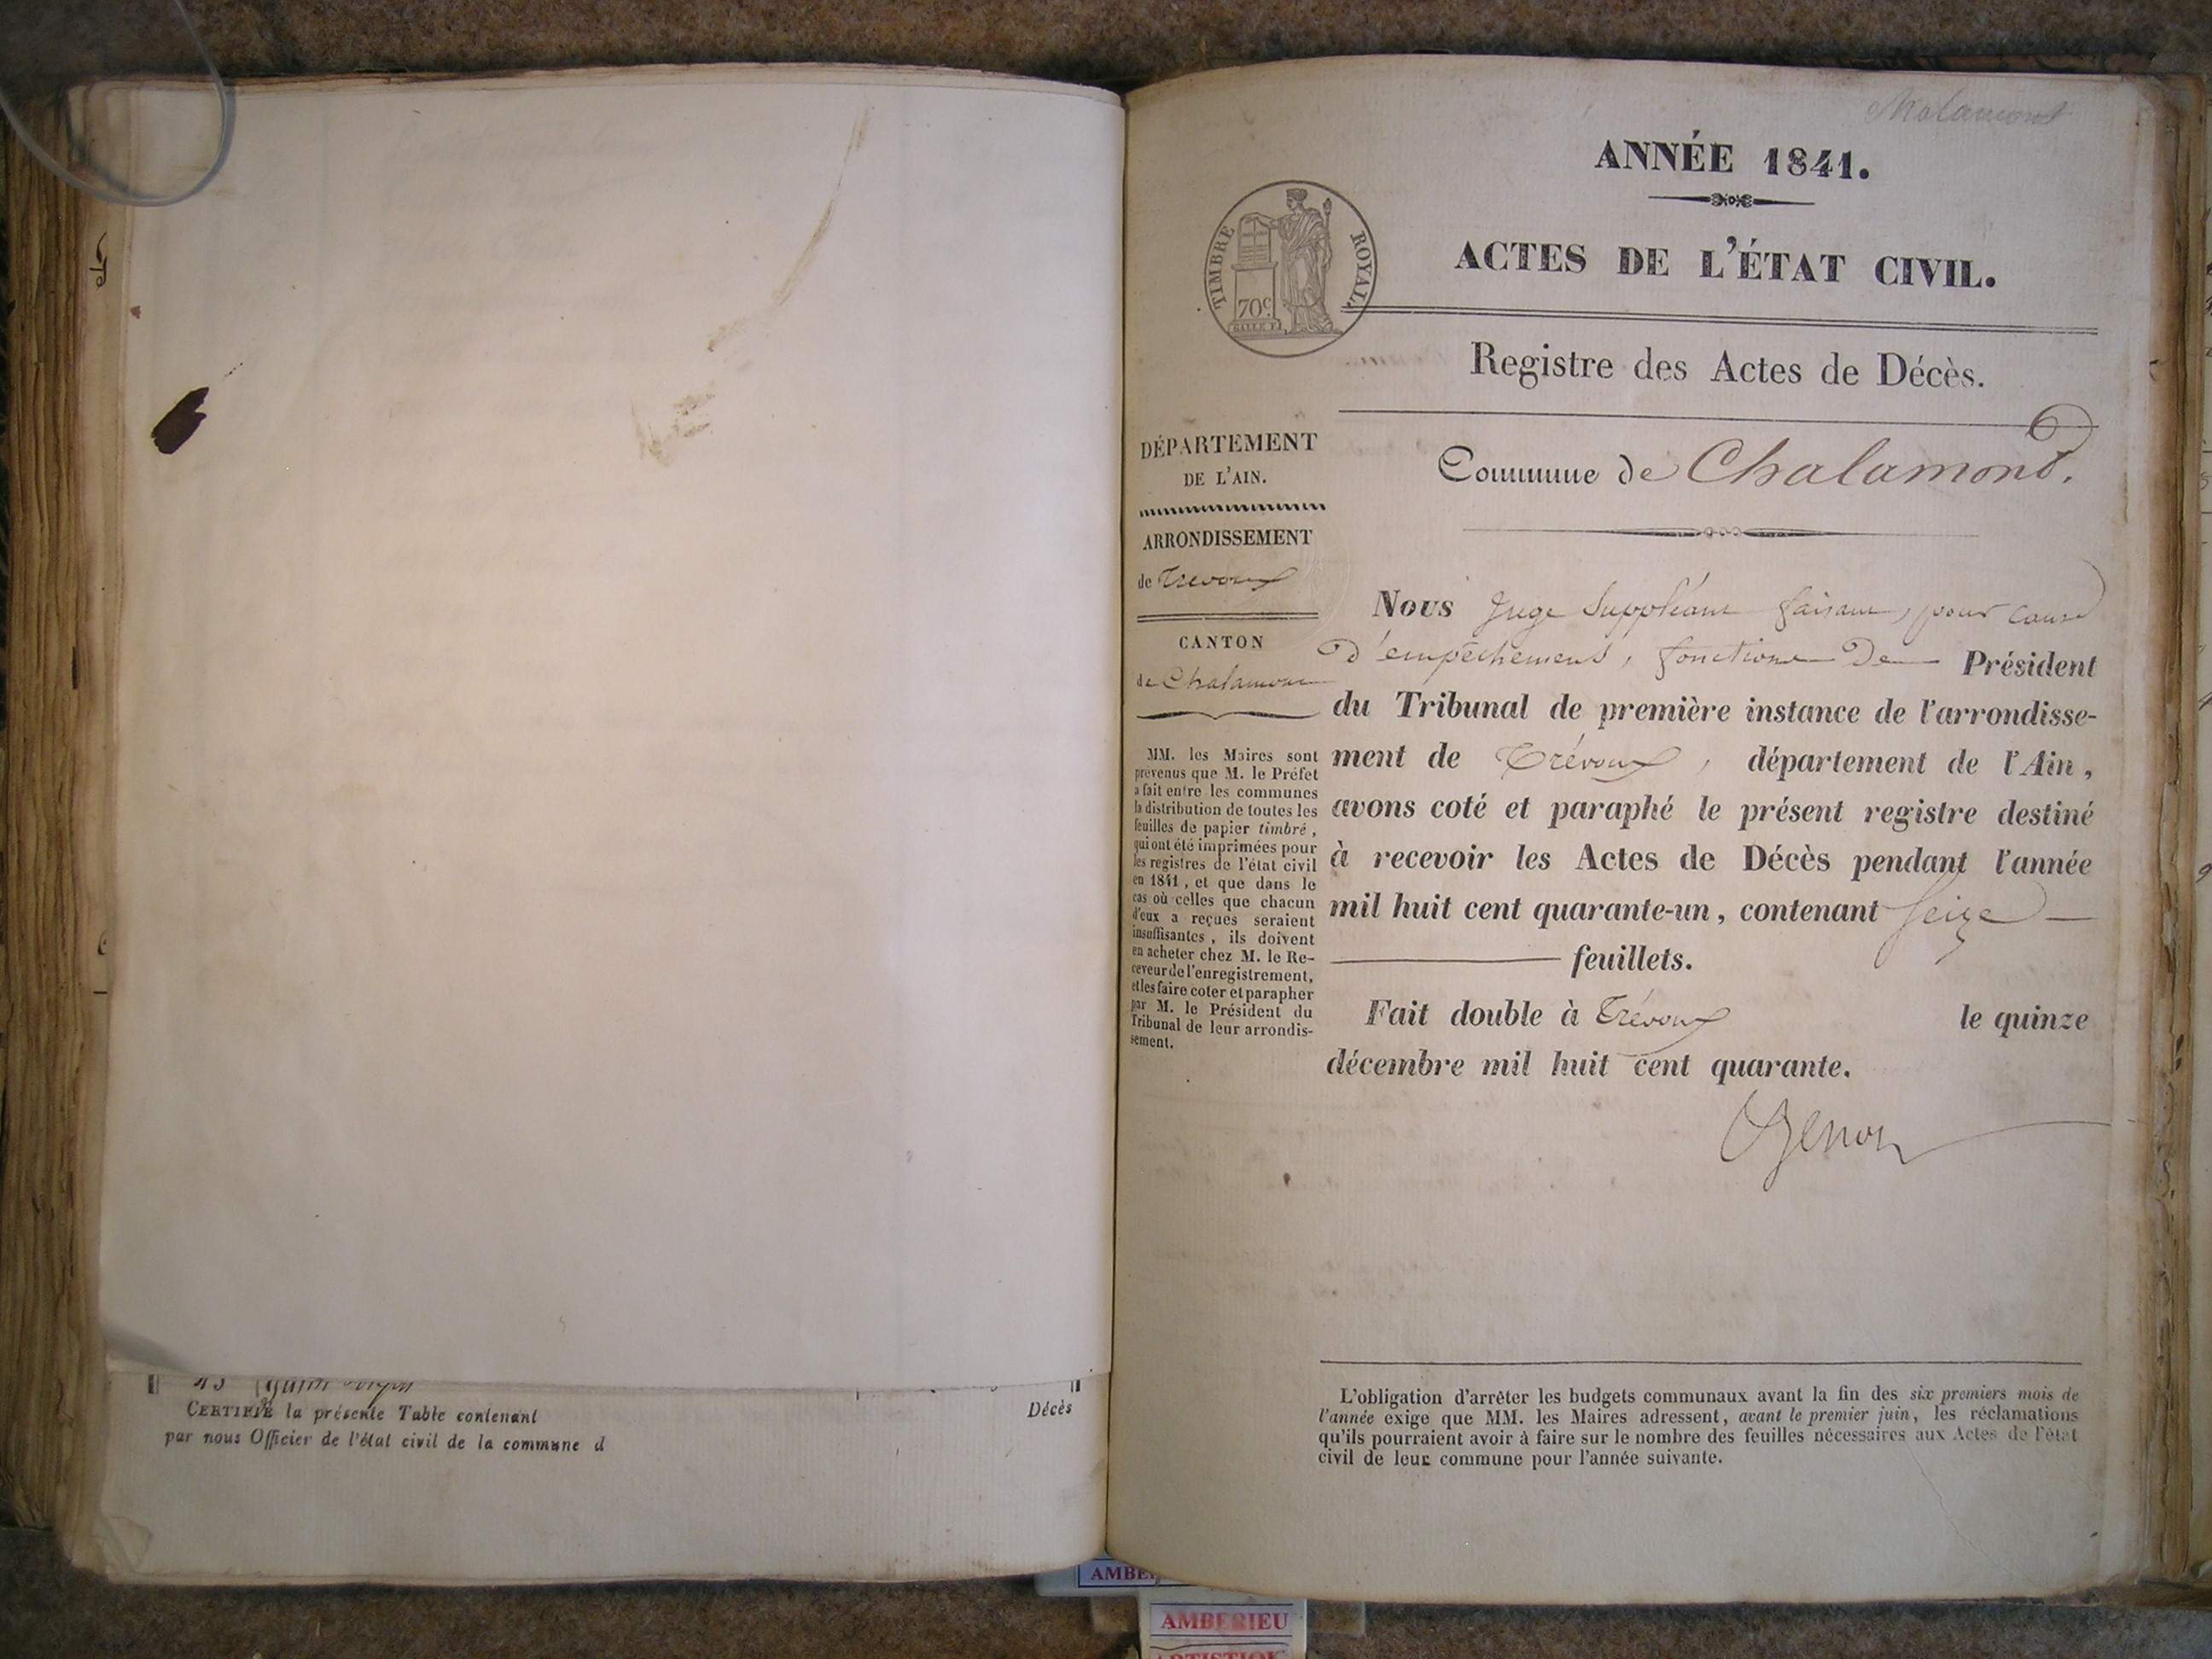 CERTIFIÉ la présente Table contenant Décès
par nous Officier de l'état civil de la commune d
Chalamont
ANNÉE 1841.
ACTES DE L'ÉTAT CIVIL.
TIMBRE ROYAL
70c.
Registre des Actes de Décès.
Commune de Chalamont.
DÉPARTEMENT
DE L'AIN.
ARRONDISSEMENT
de Trévoux
CANTON
de Chalamont
MM. les Maires sont
prévenus que M. le Préfet
a fait entre les communes
la distribution de toutes les
feuilles de papier timbré,
qui ont été imprimées pour
les registres de l'état civil
en 1841, et que dans le
cas où celles que chacun
d'eux a reçues seraient
insuffisantes, ils doivent
en acheter chez M. le Re-
ceveur de l'enregistrement,
et les faire coter et parapher
par M. le Président du
Tribunal de leur arrondis-
sement.
Nous Juge Suppléant faisant, pour cause
d'empêchement, fonctions de Président
du Tribunal de première instance de l'arrondisse-
ment de Trévoux, département de l'Ain,
avons coté et paraphé le présent registre destiné
à recevoir les Actes de Décès pendant l'année
mil huit cent quarante-un, contenant seize
feuillets.
Fait double à Trévoux le quinze
décembre mil huit cent quarante.
L'obligation d'arrêter les budgets communaux avant la fin des six premiers mois de
l'année exige que MM. les Maires adressent, avant le premier juin, les réclamations
qu'ils pourraient avoir à faire sur le nombre des feuilles nécessaires aux Actes de l'état
civil de leur commune pour l'année suivante.
AMBE
AMBERIEU